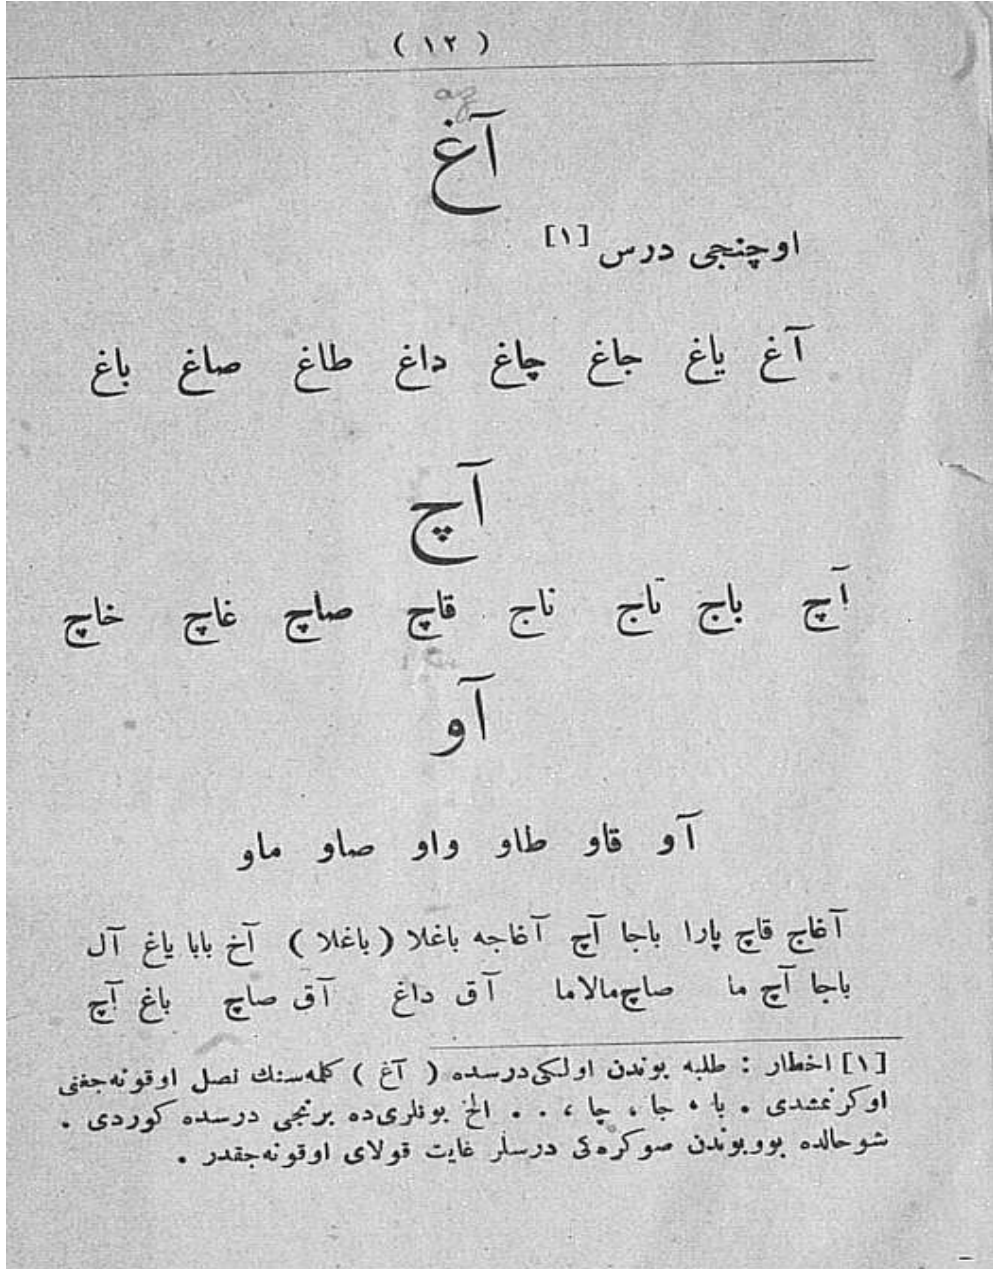 ( ١٢ )
آغ
اوچنجی درس [١]
آغ یاغ جاغ چاغ داغ طاغ صاغ باغ
آچ
آچ باج تاج ناج قاچ صاچ غاچ خاچ
آو
آو قاو طاو واو صاو ماو
آغاج قاچ پارا باجا آچ آغاجه باغلا ( باغلا ) آخ بابا یاغ آل
باجا آچ ما صاچمالاما آق داغ آق صاچ باغ آچ
[١] اخطار : طلبه بوندن اولکی درسده ( آغ ) كلمه‌سنك نصل اوقونه‌جغنی
اوکرنمشدی . با ، جا ، چا ، . . الخ بونلری‌ده برنجی درسده کوردی .
شو حالده بو وبوندن صوکره‌کی درسلر غایت قولای اوقونه‌جقدر .